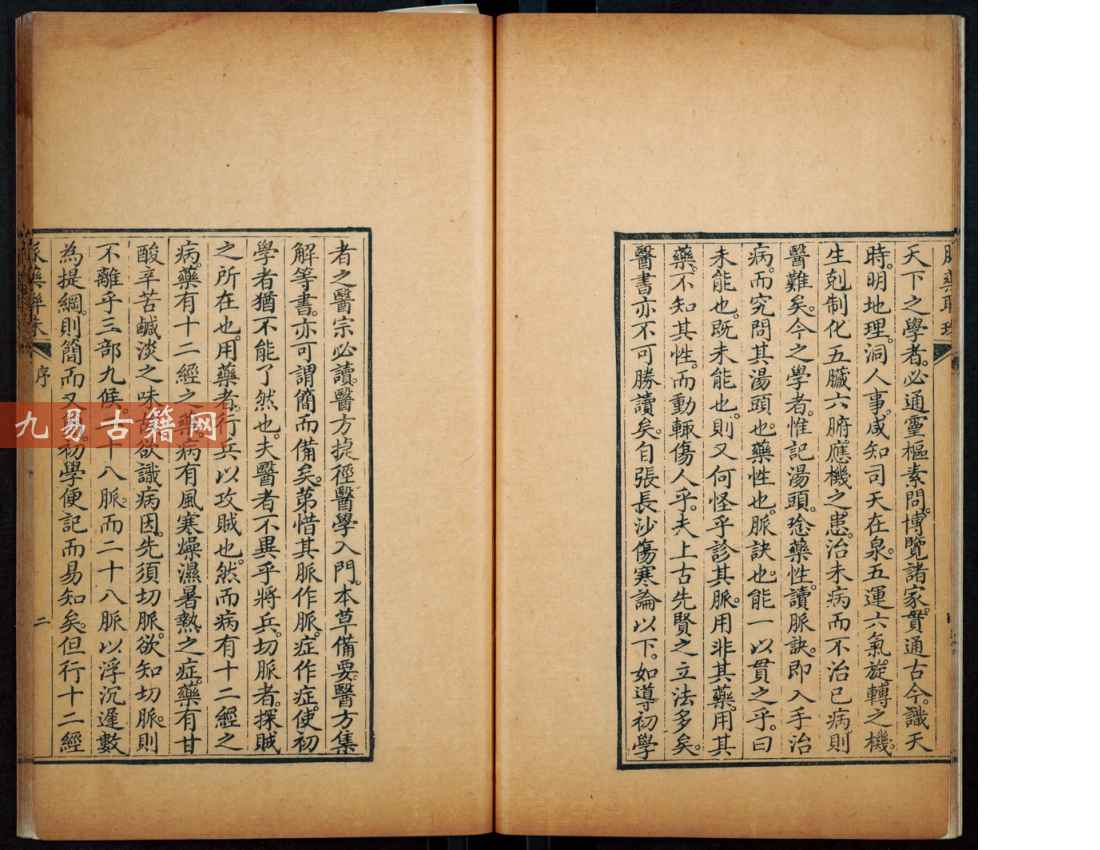 脉藥聯珠
天下之學者。必通靈樞素問。博覽諸家。貫通古今。識天
時。明地理。洞人事。咸知司天在泉。五運六氣。旋轉之機。
生剋制化。五臟六腑。應機之患。治未病而不治已病。則
醫難矣。今之學者。惟記湯頭。唸藥性。讀脈訣。即入手治
病。而究問其湯頭也。藥性也。脈訣也。能一以貫之乎。曰
未能也。既未能也。則又何怪乎診其脈。用非其藥。用其
藥。不知其性。而動輒傷人乎。夫上古先賢之立法多矣。
醫書亦不可勝讀矣。自張長沙傷寒論以下。如導初學
者之醫宗必讀。醫方捷徑。醫學入門。本草備要。醫方集
解等書。亦可謂簡而備矣。第惜其脈作脈。症作症。使初
學者猶不能了然也。夫醫者不異乎將兵。切脈者。探賊
之所在也。用藥者。行兵以攻賊也。然而病有十二經之
病。藥有十二經之藥。病有風寒燥濕暑熱之症。藥有甘
酸辛苦鹹淡之味。欲識病因。先須切脈。欲知切脈。則
不離乎三部九候。十八脈。而二十八脈以浮沉遲數
為提綱。則簡而又 初學便記而易知矣。但行十二經
脉藥聯珠 序 二
九易古籍网